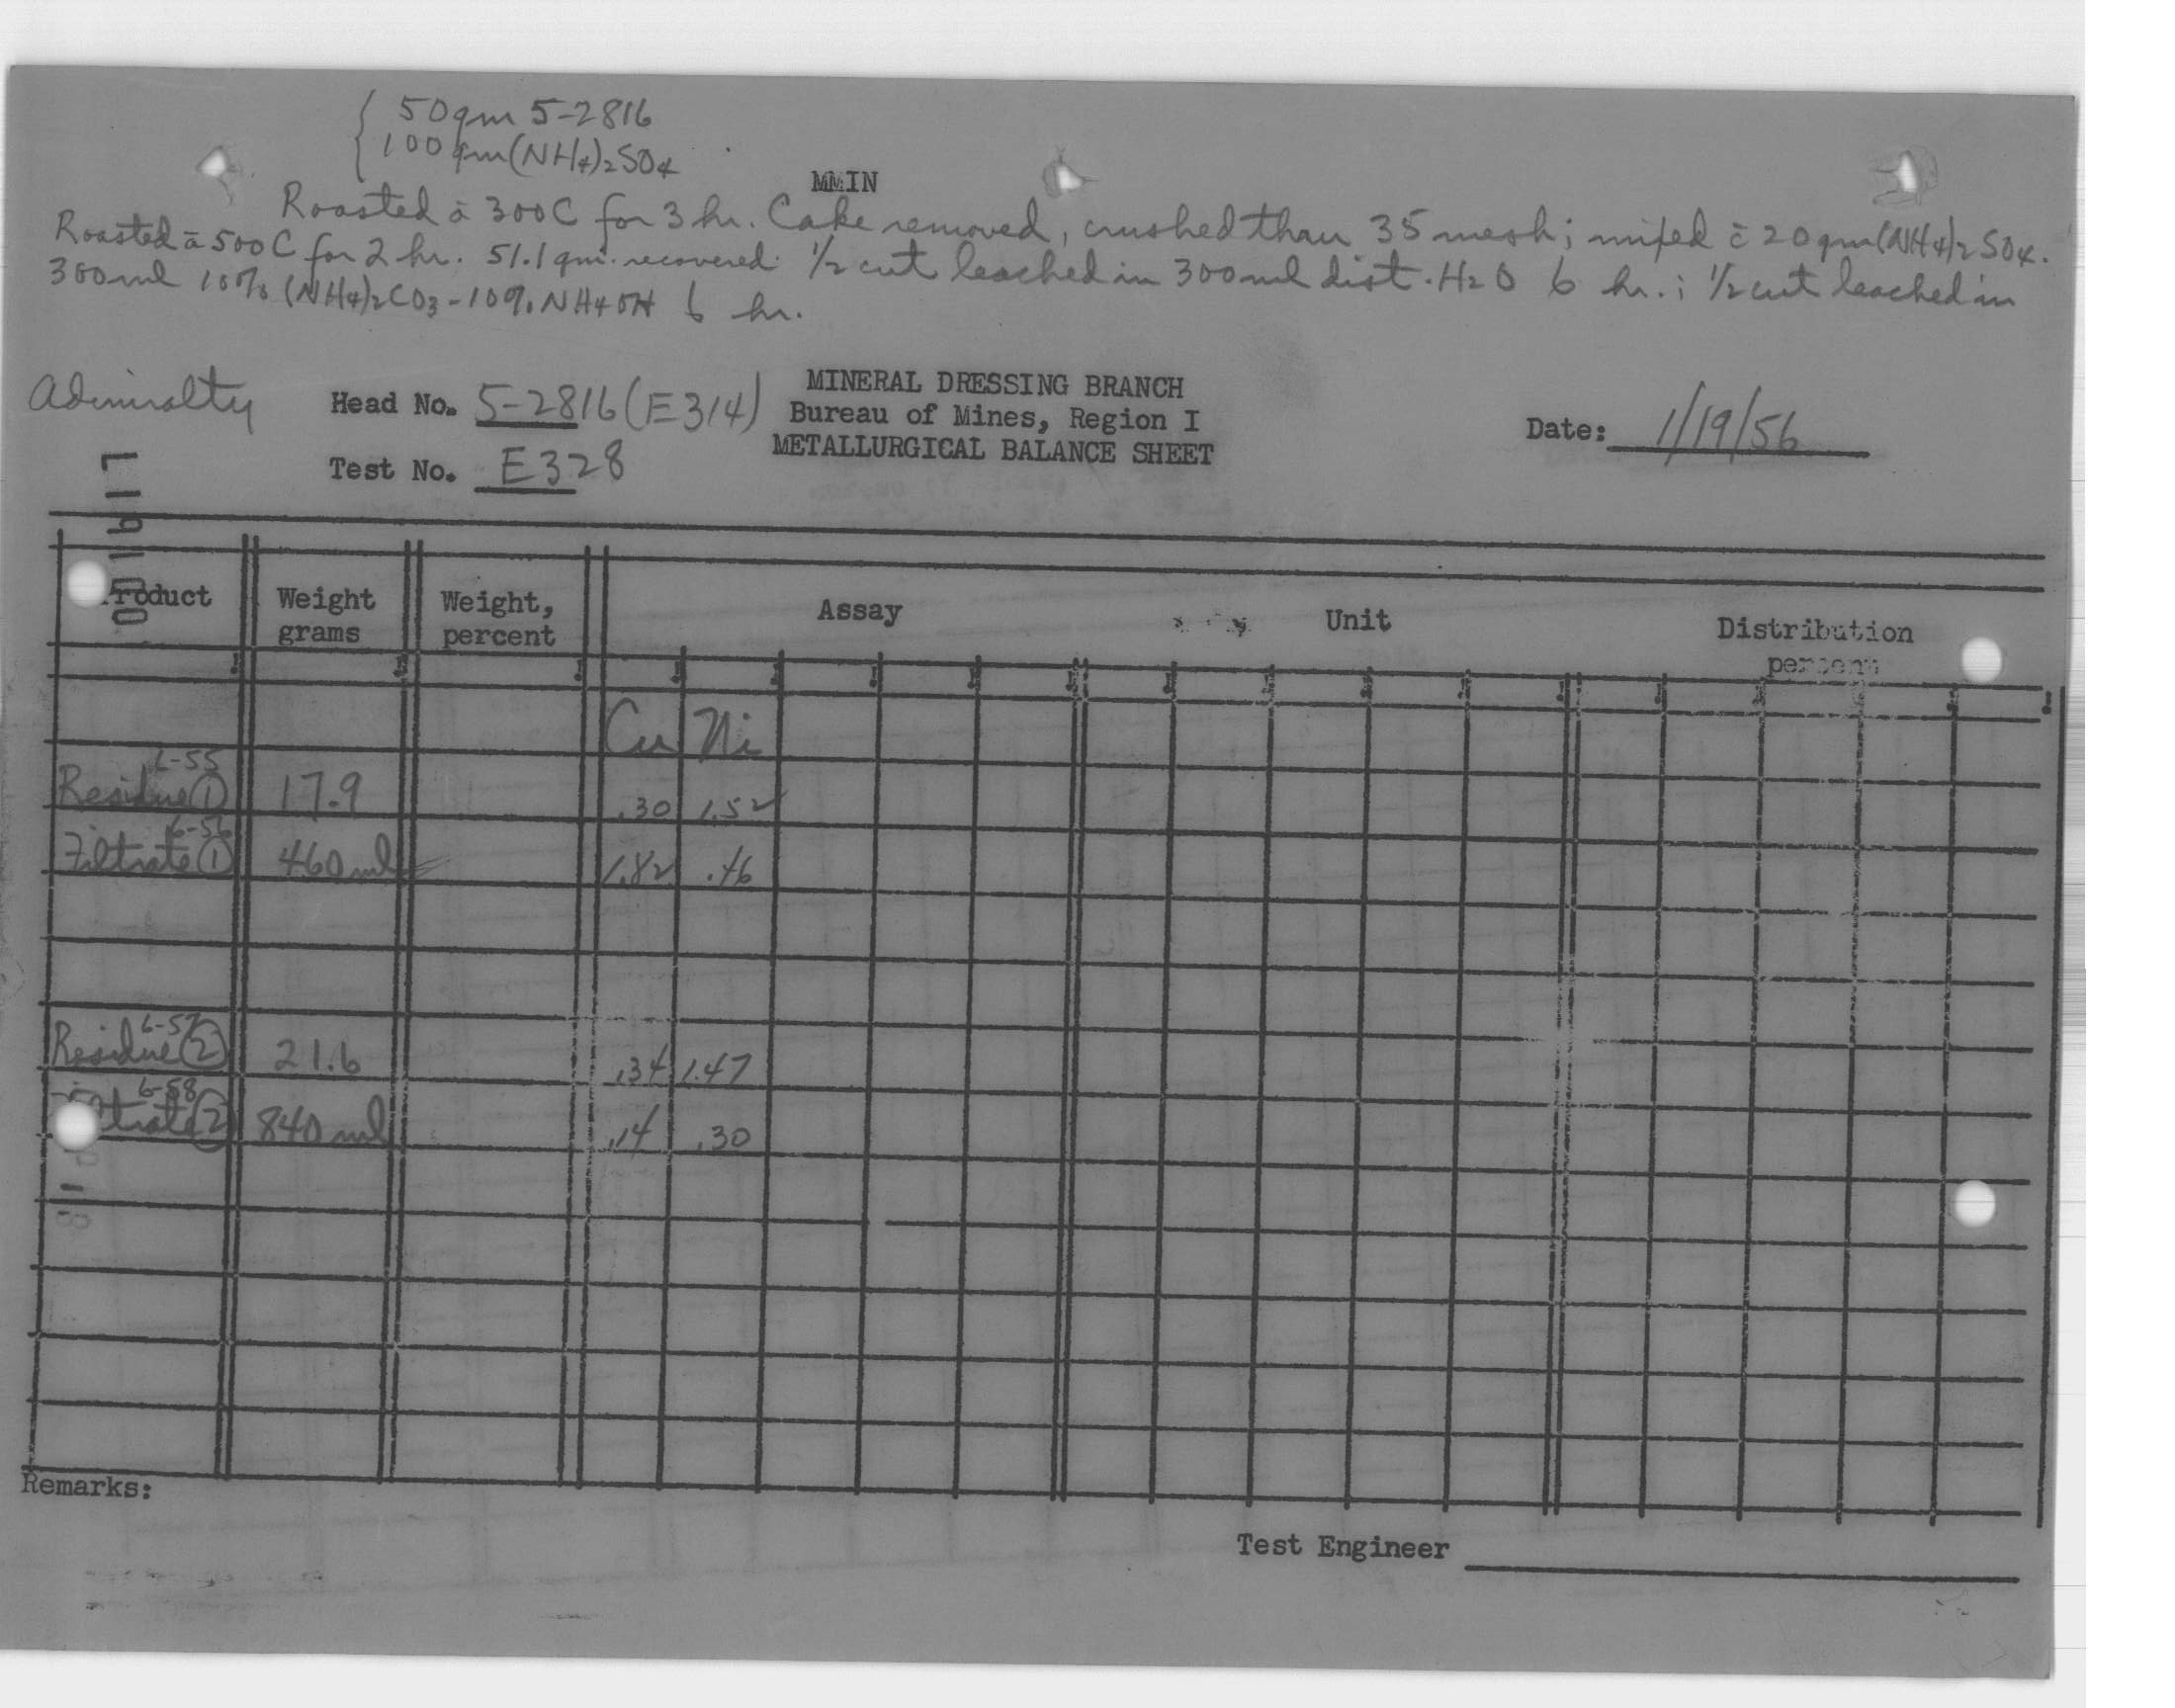 { 50 gm 5-2816
100 gm (NH4)2SO4
MMIN
Roasted ā 300C for 3 hr. Cake removed, crushed thru 35 mesh; mixed c̄ 20 gm (NH4)2SO4.
Roasted ā 500C for 2 hr. 51.1 gm. recovered. 1/2 cut leached in 300 ml dist. H2O 6 hr.; 1/2 cut leached in
300 ml 10% (NH4)2CO3-10% NH4OH 6 hr.
Admiralty
Head No. 5-2816 (E314)
MINERAL DRESSING BRANCH
Bureau of Mines, Region I
METALLURGICAL BALANCE SHEET
Date: 1/19/56
Test No. E328
Product Weight grams Weight, percent Assay Unit Distribution percent
Cu Ni
6-55
Residue ① 17.9 .30 1.52
6-56
Filtrate ① 460 ml 1.82 .46
6-57
Residue ② 21.6 .34 1.47
6-58
Filtrate ② 840 ml .14 .30
Remarks:
Test Engineer